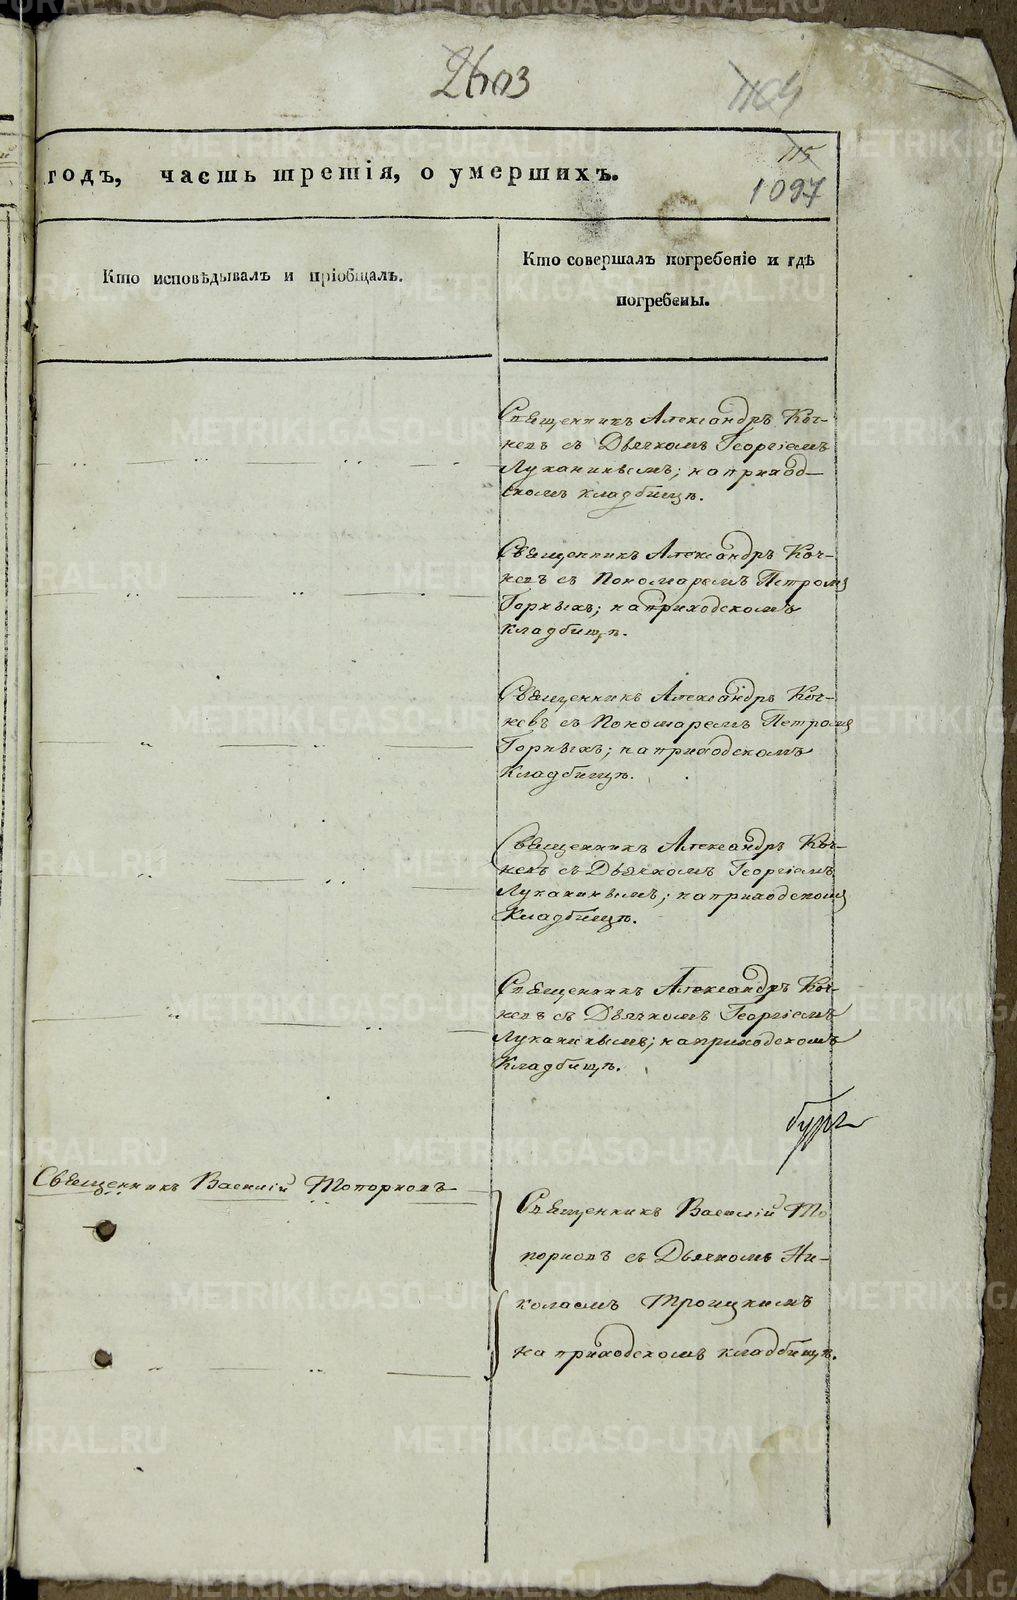 2603
1104
115
1097
годъ, часть третія, о умершихъ.
Кто исповѣдывалъ и пріобщалъ.
Кто совершалъ погребеніе и гдѣ
погребены.
Священникъ Александръ Коч-
невъ съ Дьячкомъ Георгіемъ
Луканинымъ; на приход-
скомъ кладбищѣ.
Священникъ Александръ Коч-
невъ съ Пономаремъ Петромъ
Горныхъ; на приходскомъ
кладбищѣ.
Священникъ Александръ Коч-
невъ съ Пономаремъ Петромъ
Горныхъ; на приходскомъ
Кладбищѣ.
Священникъ Александръ Коч-
невъ съ Дьячкомъ Георгіемъ
Луканинымъ; на приходскомъ
Кладбищѣ.
Священникъ Александръ Коч-
невъ съ Дьячкомъ Георгіемъ
Луканинымъ; на приходскомъ
Кладбищѣ.
Священникъ Василій Топорковъ
Священникъ Василій То
порковъ съ Дьячкомъ Ни-
колаемъ Троицкимъ
на приходскомъ кладбищѣ.
METRIKI.GASO-URAL.RU